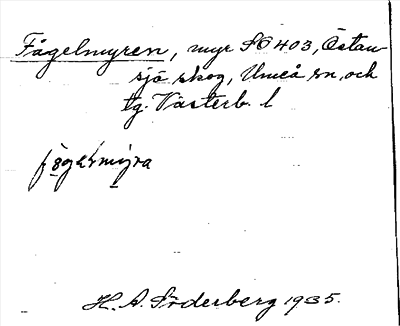 Fågelmyren, myr SO 403, Östan-
sjö skog, Umeå sn, och
tg. Västerb. l
fǫgelmyra
H. A. Söderberg 1935.